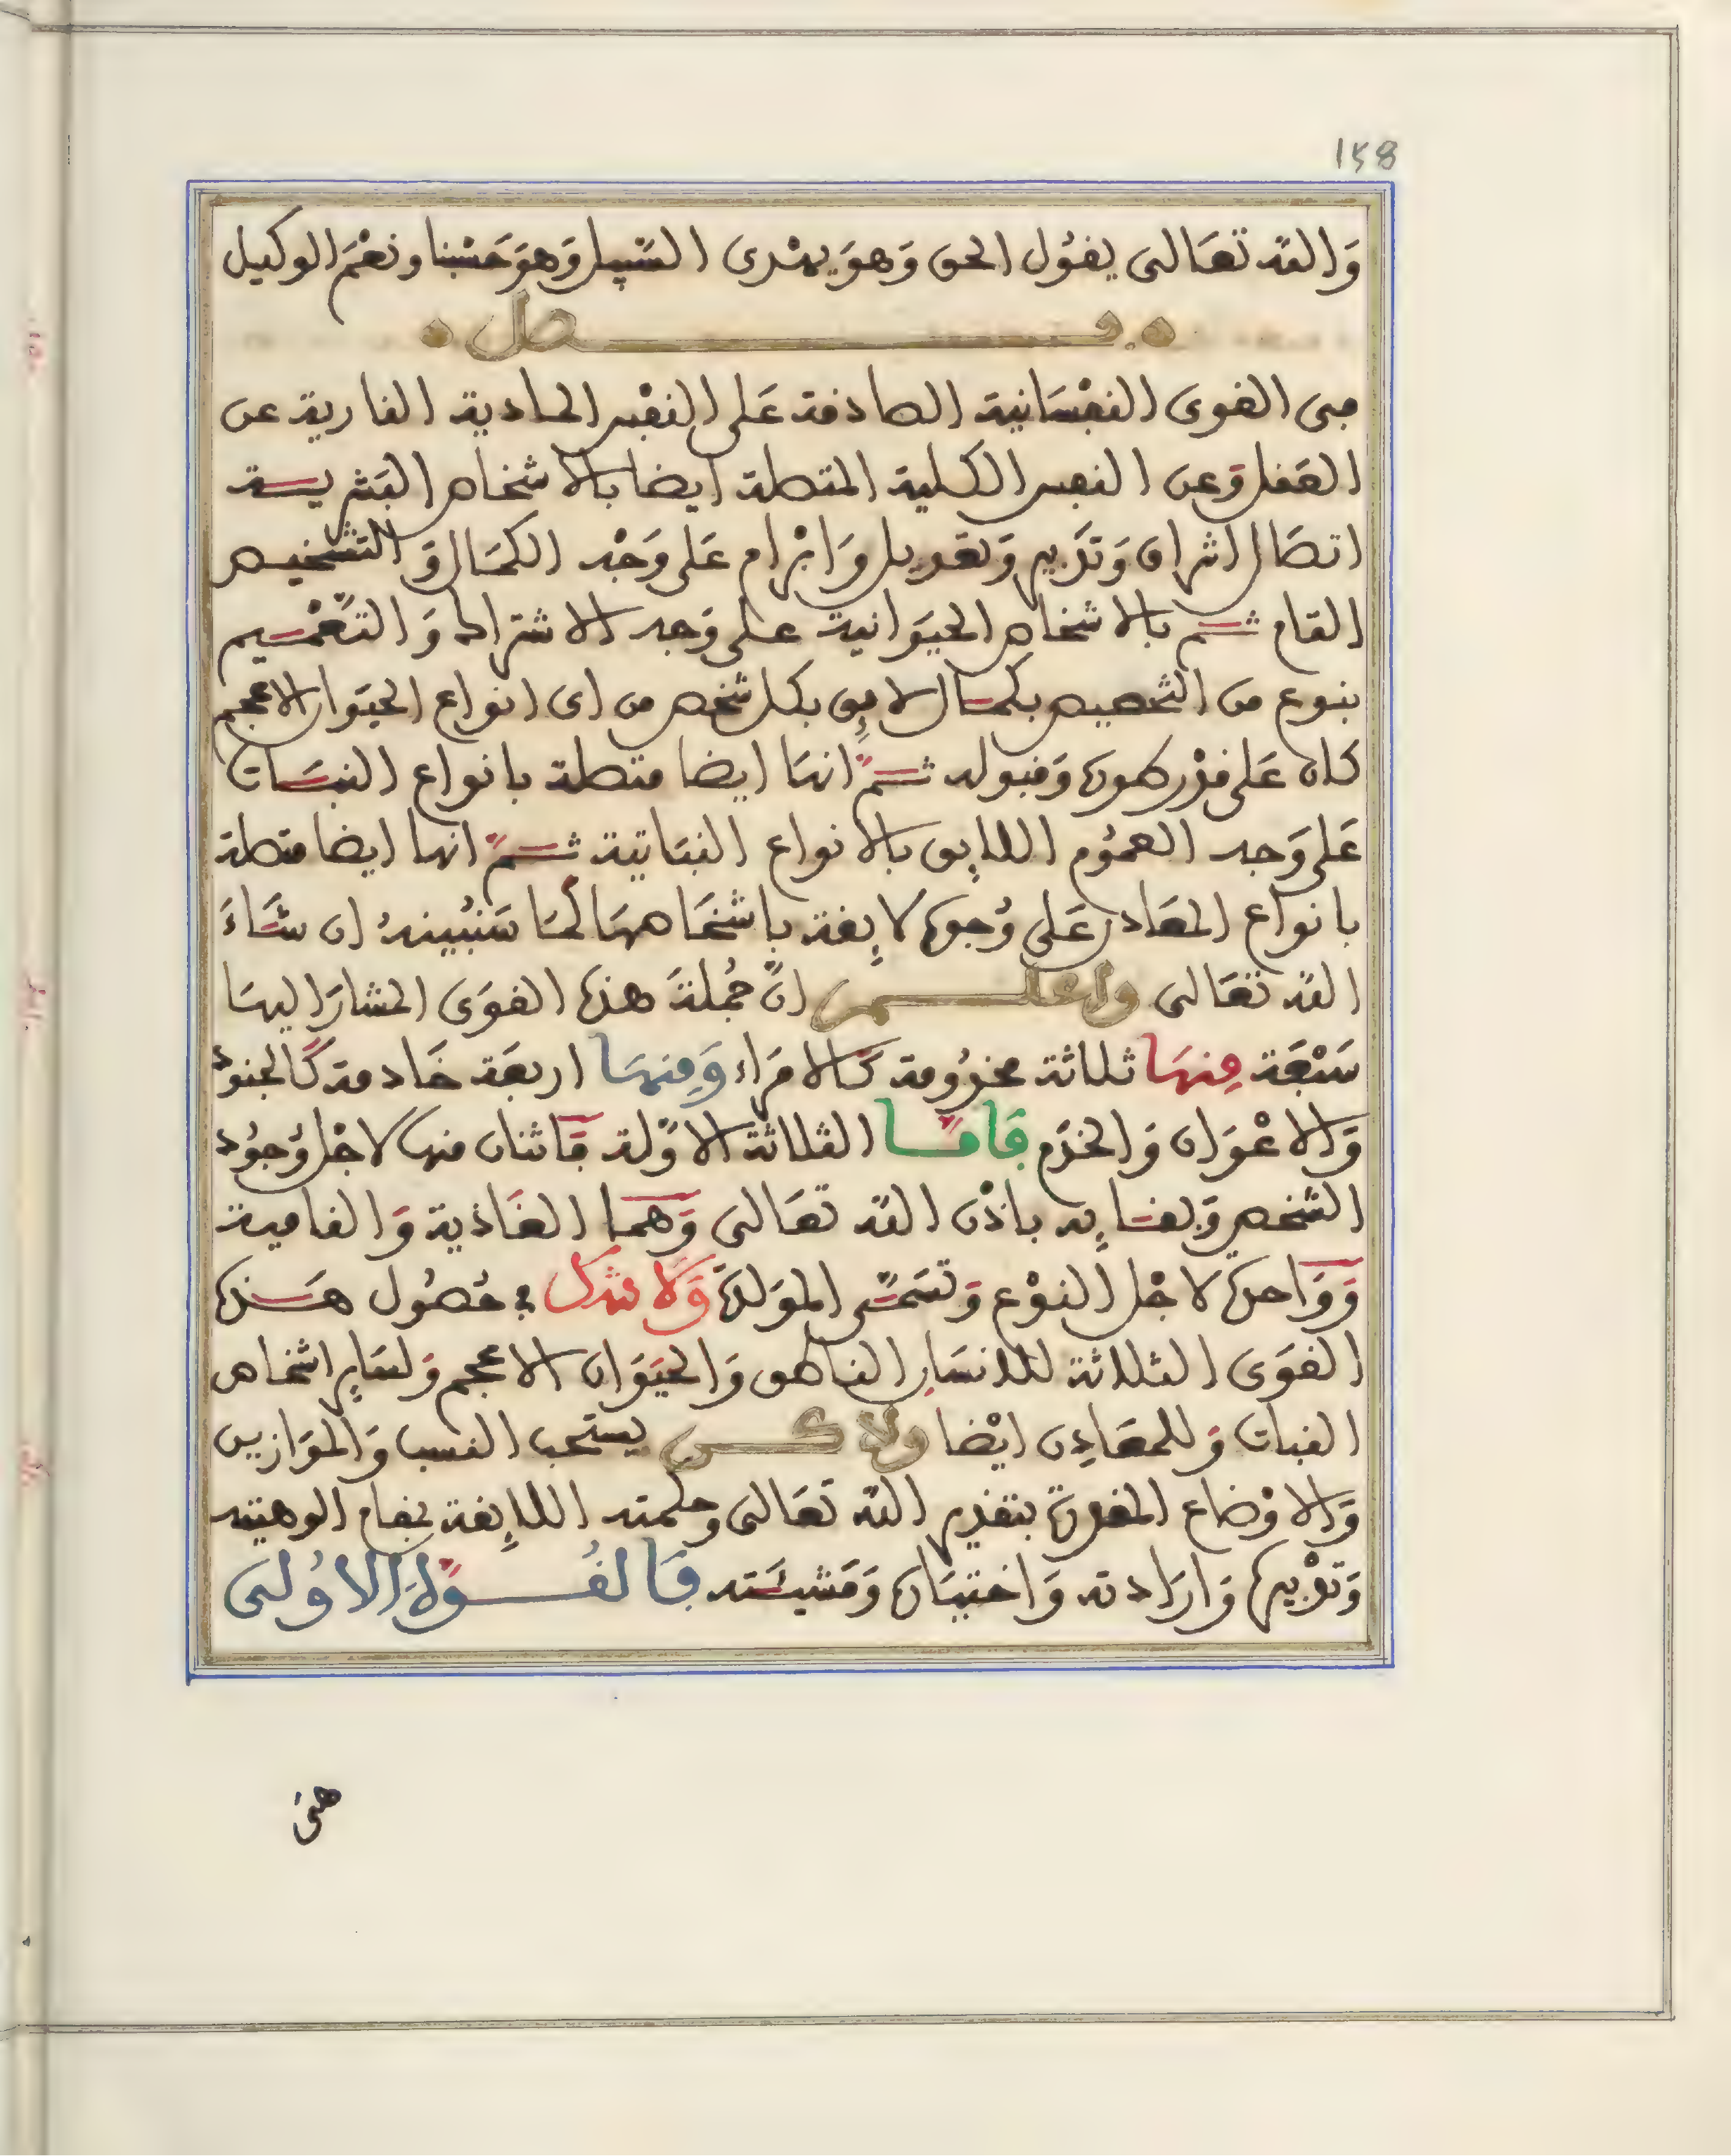 158
وَالله تعَالى يقُول الحق وَهوَ يهْدى السَّبيل وَهوَ حَسْبنا ونعْمَ الوكيل
فصل
فى القوى النفْسَانية الصادفة عَلى النفْس الحادية النارية عن
العَقل وَعن النفس الكلية المتصلة ايضا بالاشخاص البَشريــة
اتصَال اشراق وَتَدبير وَتعْديل وَابْرام عَلى وَجْه الكمَال وَالتشخيص
التام ثــم بالاشخاص الحيَوَانية على وَجه الاشتراك وَالتّعْميم
بنوع من التخصيص بكمَال لايق بكل شخص من اى انواع الحيَوان الاعجم
كان عَلى قدْر ظهوره وَقبوله ثــمّ انهَا ايضا متصلة بانواع النبَــات
عَلى وَجه العمُوم اللايق بالانواع النبَاتية ثــمّ انها ايضا متصلة
بانواع المعَادن عَلى وُجوه لايقة باشخَاصهَا لمَا سَنُبينهُ ان شَــاءَ
الله تعَالى واعلــم انّ جُملةَ هذه القوَى المشارَ اليهَا
سَبْعَة مِنهَا ثلاثة مخدُومة كَالامَراء وَمِنهَا اربعَة خَادمة كَالجنود
وَالاعْوَان وَالخدَم فَامّــا الثلاثة الاوّلة فَاثنان منها لاجْل وُجوُد
الشخص وَبقــايه باذْن الله تعَالى وَهمــا الغَاذية وَالنامية
وَوَاحدة لاجْل النوْع وَتسَمّــى الموَلدة وَلا شك فى حُصُول هَــذه
القوَى الثلاثة للانسَان الناطق وَالحيَوَان الاعجم وَلسَاير اشخاص
النبات وَللمعَادِن ايْضا ولاكــن بحَسب النسب وَالموَازين
وَالاوْضاع المقدرة بتقدير الله تعَالى وحكمته اللايقة بمقام الوهيته
وَتدْبيره وَارَادته وَاختيَاره وَمَشيئَــته فَالقُــوّة الاوُلى
هى